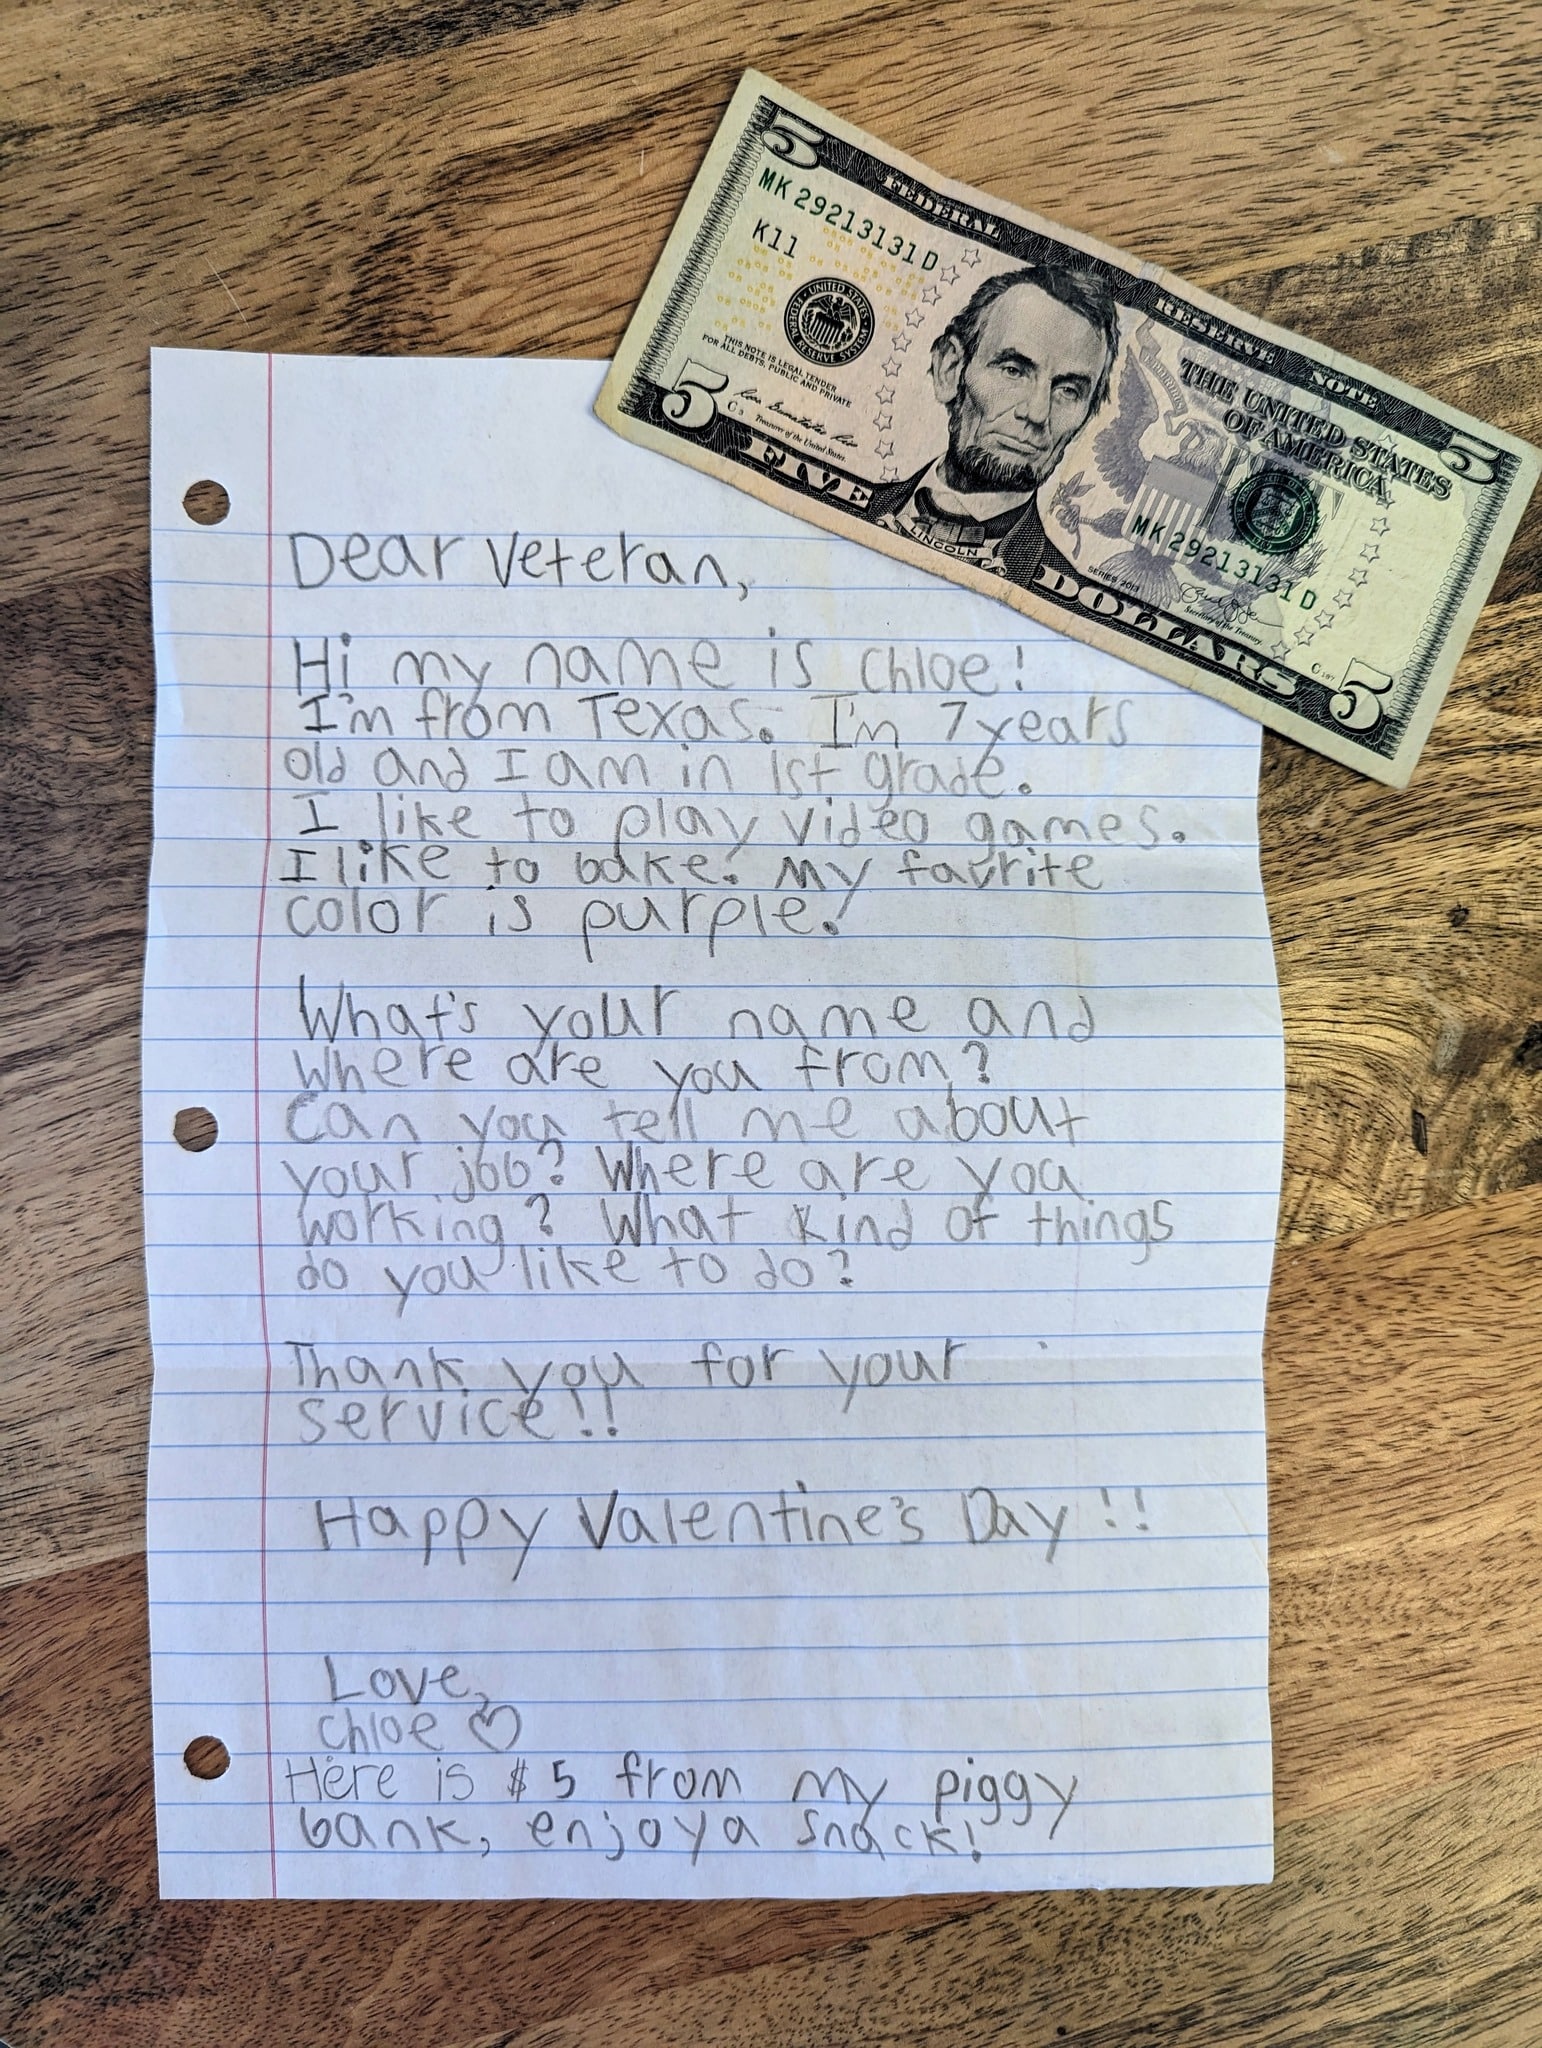 5
FEDERAL RESERVE NOTE
5
MK 29213131 D
K11
THE UNITED STATES
OF AMERICA
UNITED STATES
FEDERAL RESERVE SYSTEM
THIS NOTE IS LEGAL TENDER
FOR ALL DEBTS, PUBLIC AND PRIVATE
Treasurer of the United States.
MK 29213131 D
SERIES 2013
Secretary of the Treasury.
LINCOLN
5
FIVE DOLLARS
5
Dear Veteran,
Hi my name is Chloe!
I'm from Texas. I'm 7 years
old and I am in 1st grade.
I like to play video games.
I like to bake. My favrite
color is purple.
What's your name and
where are you from?
Can you tell me about
your job? Where are you
working? What kind of things
do you like to do?
Thank you for your
service!!
Happy Valentine's Day!!
Love,
Chloe
Here is $5 from my piggy
bank, enjoy a snack!